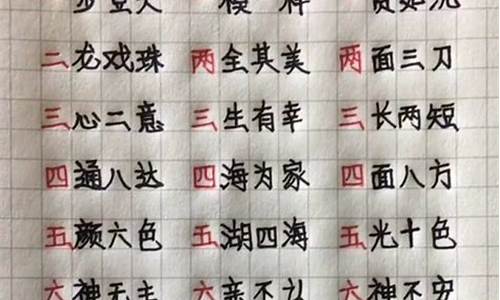 步登天 模 样 贫如洗
二龙戏珠 两全其美 两面三刀
三心二意 三生有幸 三长两短
四通八达 四海为家 四面八方
五颜六色 五湖四海 五光十色
六神无主 六亲不认 六神不安